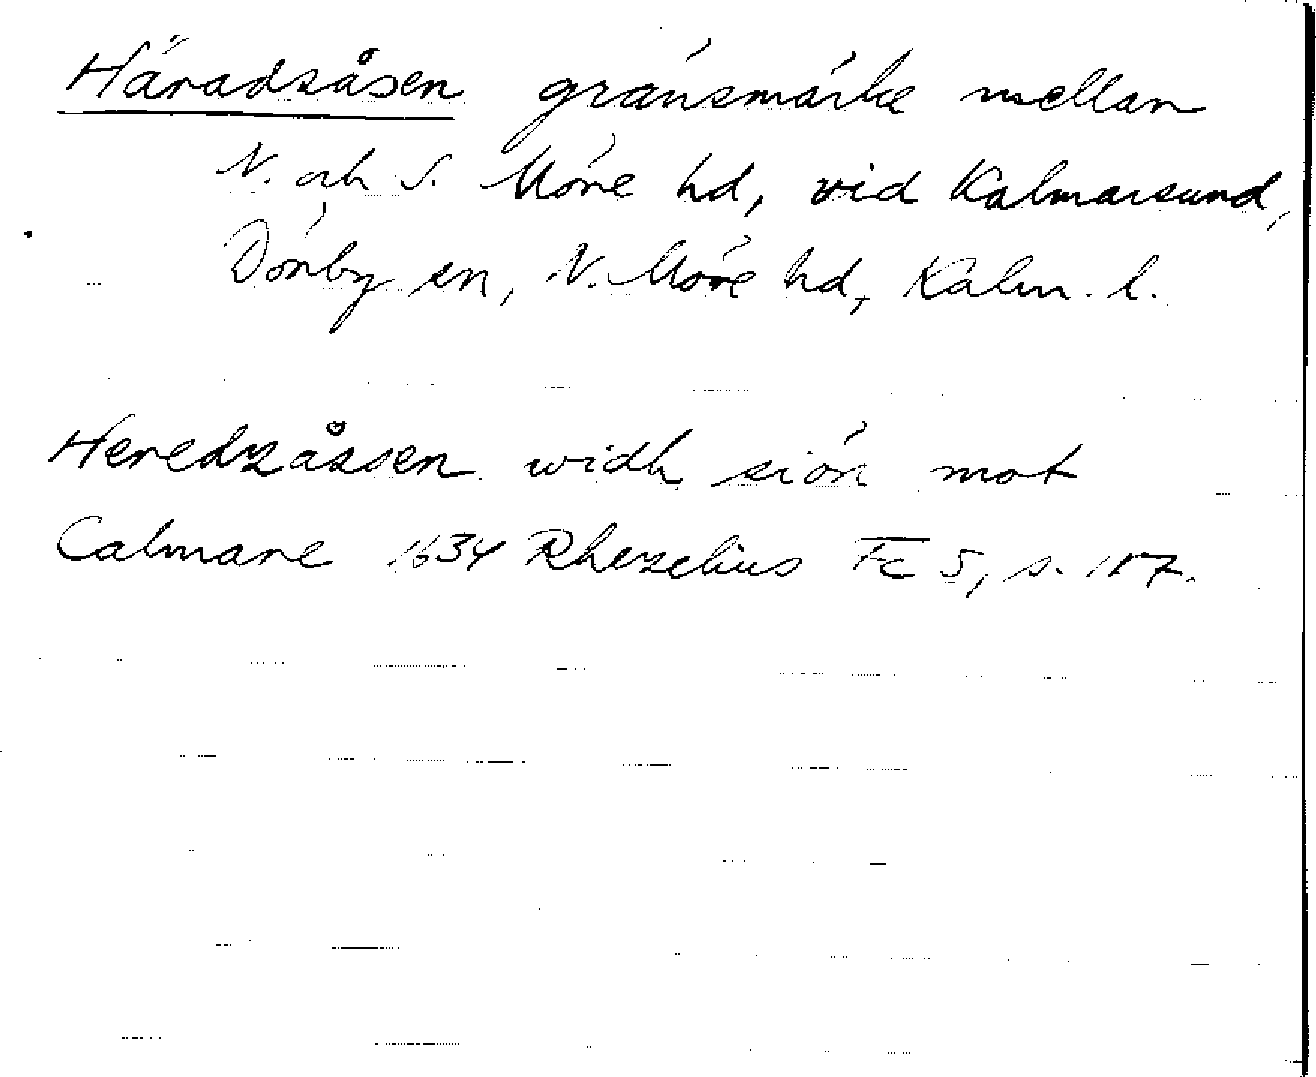 Häradsåsen gränsmärke mellan
N. och S. Möre hd, vid Kalmarsund,
Dörby sn, N. Möre hd, Kalm. l.
Heredzåssen widh siön mot
Calmare 1634 Rhezelius Fc 5, s.